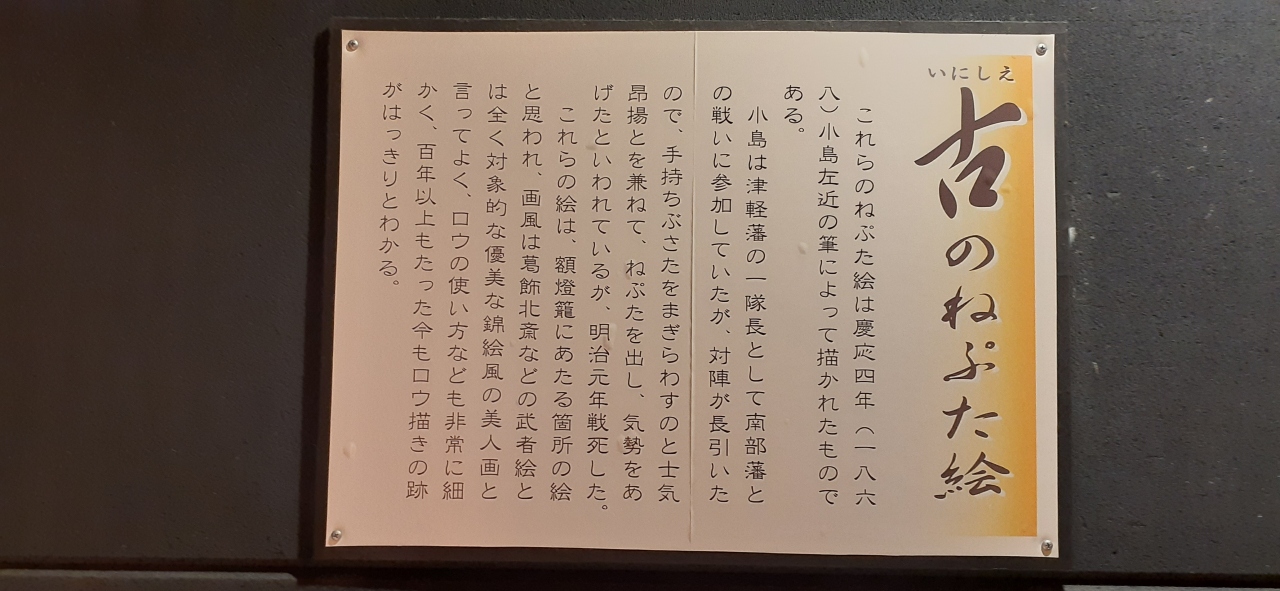 いにしえ
古のねぷた絵
これらのねぷた絵は慶応四年（一八六
八）小島左近の筆によって描かれたもので
ある。
小島は津軽藩の一隊長として南部藩と
の戦いに参加していたが、対陣が長引いた
ので、手持ちぶさたをまぎらわすのと士気
昂揚とを兼ねて、ねぷたを出し、気勢をあ
げたといわれているが、明治元年戦死した。
これらの絵は、額燈籠にあたる箇所の絵
と思われ、画風は葛飾北斎などの武者絵と
は全く対象的な優美な錦絵風の美人画と
言ってよく、ロウの使い方なども非常に細
かく、百年以上もたった今もロウ描きの跡
がはっきりとわかる。